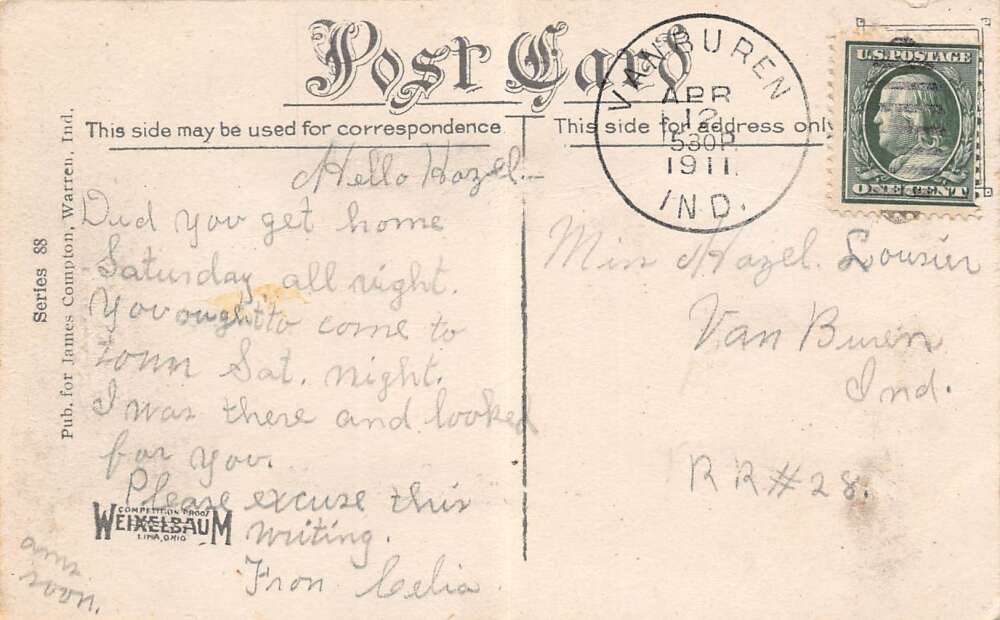 Post Card
This side may be used for correspondence
This side for address only
VAN BUREN
APR
12
530P
1911
IND.
U.S. POSTAGE
ONE CENT
Series 88
Pub. for James Compton, Warren, Ind.
Hello Hazel.
Did you get home
Saturday all right.
You ought to come to
town Sat. night.
I was there and looked
for you.
Please excuse this
writing.
Fron Celia
COMPETITION PROOF
WEIXELBAUM
LIMA, OHIO
ans
soon
Miss Hazel.
Van Buren
Ind.
RR#28.